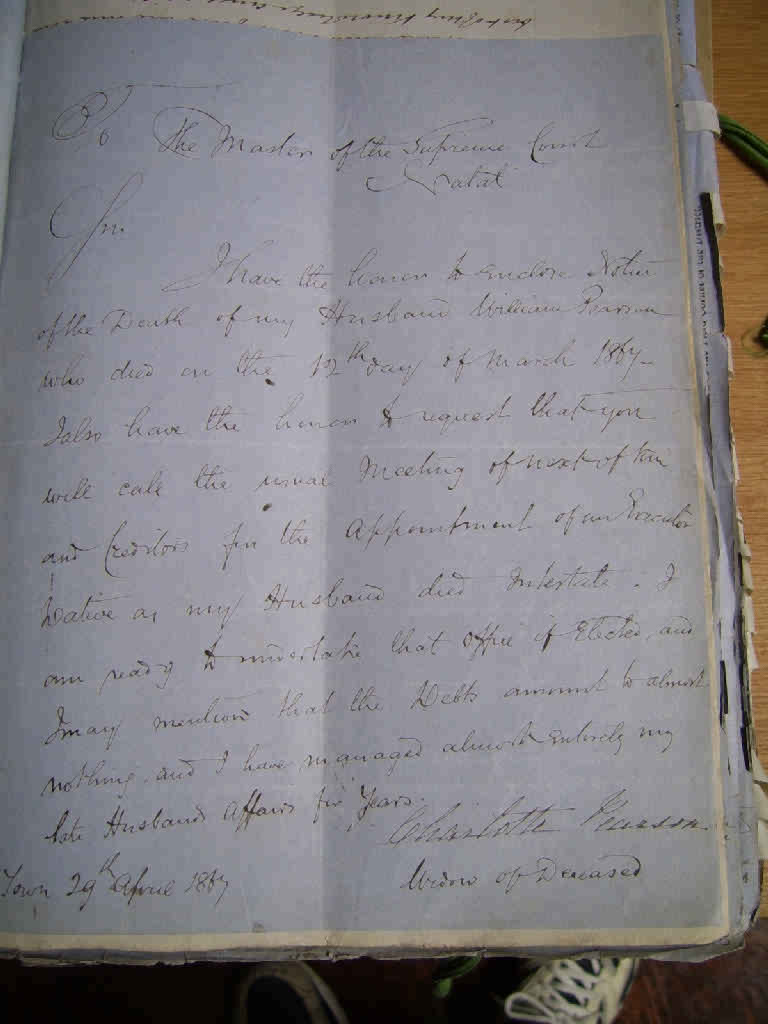 To The Master of the Supreme Court
Natal
Sir
I have the honor to enclose Notice
of the Death of my Husband William Pearson
who died on the 12th day of March 1867
I also have the honor to request that you
will call the usual Meeting of next of kin
and Creditors for the Appointment of an Executor
Dative as my Husband died Intestate. I
am ready to undertake that office if Elected, and
I may mention that the Debts amount to almost
nothing, and I have managed almost entirely my
late Husbands Affairs for Years.
Charlotte Pearson
Town 29th April 1867
Widow of Deceased